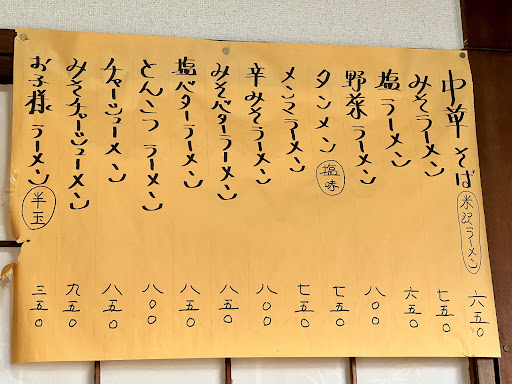 中華そば 米沢ラーメン 六五〇
みそラーメン 七五〇
塩ラーメン 六五〇
野菜ラーメン 八〇〇
タンメン 塩味 七五〇
メンマラーメン 七五〇
辛みそラーメン 八〇〇
みそバターラーメン 八五〇
塩バターラーメン 八五〇
とんこつラーメン 八〇〇
チャーシューメン 八五〇
みそチャーシューメン 九五〇
お子様ラーメン 半玉 三五〇